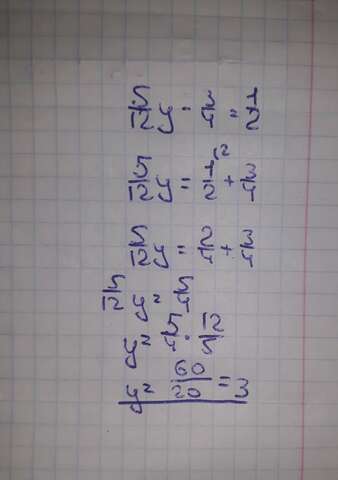 5/12 y - 3/4 = 1/2
5/12 y = 1/2 ² + 3/4
5/12 y = 2/4 + 3/4
5/12 y = 5/4
y = 5/4 · 12/5
y = 60/20 = 3